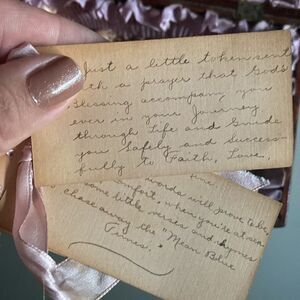 Just a little token sent
with a prayer that God's
Blessing accompany you
ever in your Journey
through Life and Guide
you Safely and Success-
fully to Faith, Love,
words will prove to be
comfort, when you're at sea
some little verses and rhymes
chase away the "Mean Blue
Times.